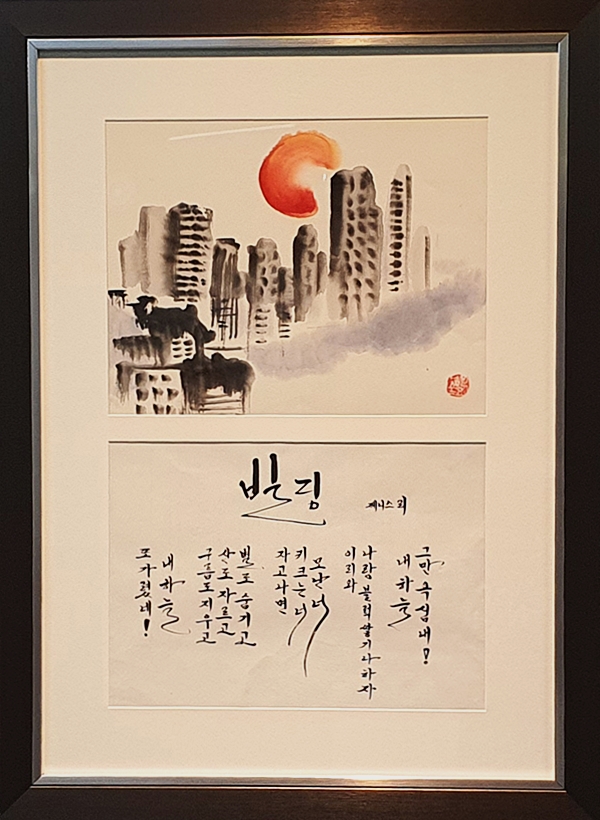 빌딩
제니스
또 가렸네!
내 하늘
구름도 지우고
산도 자르고
별도 숨기고
자고나면
키 크는 너
모난 너
이리와
나랑 블럭쌓기나 하자
내 하늘
그만 욕심내!